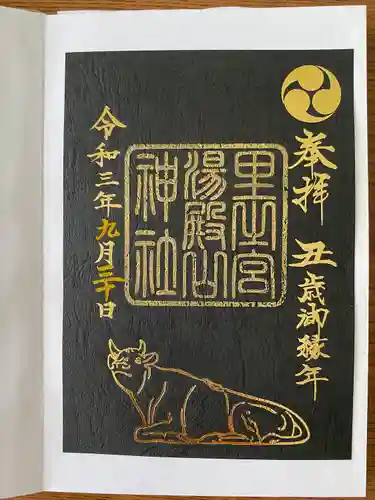 奉拝 丑歳御縁年
里之宮
湯殿山
神社
令和三年九月二十日